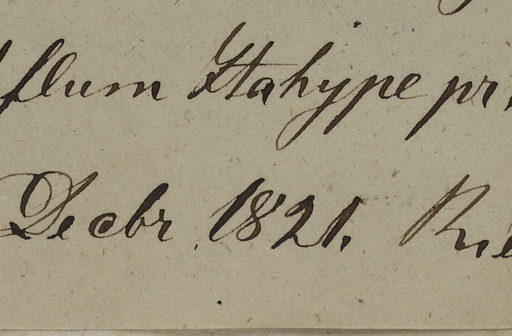 flum Itahype pr
Decbr 1821. Rie